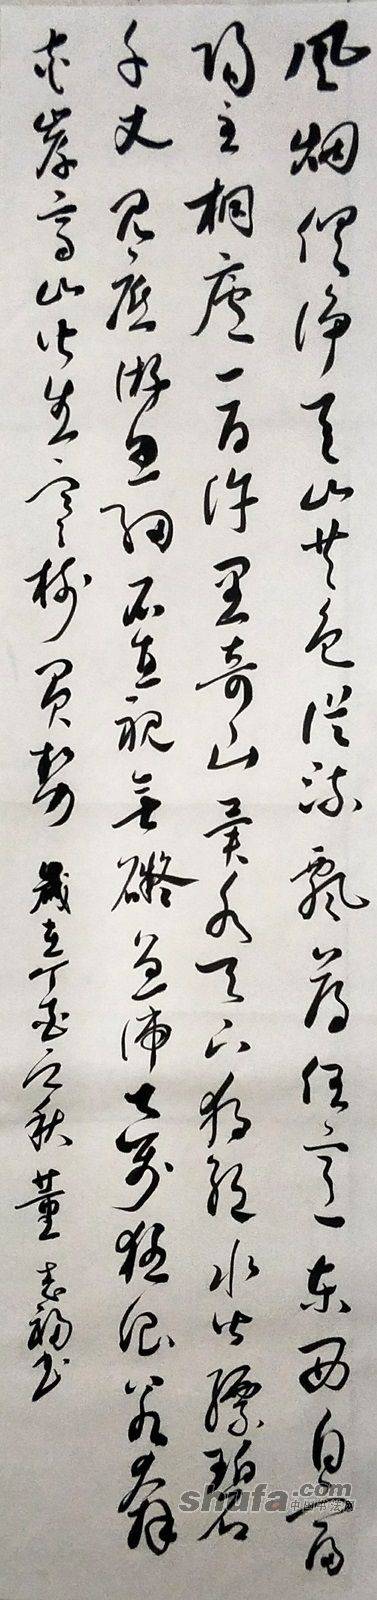 风烟俱净天山共色从流飘荡任意东西自富
阳至桐庐一百许里奇山异水天下独绝水皆缥碧
千丈见底游鱼细石直视无礙急湍甚箭猛浪若奔
夹岸高山皆生寒树负势 歲在丁酉之秋 董志福书
shufa.com
中国书法网